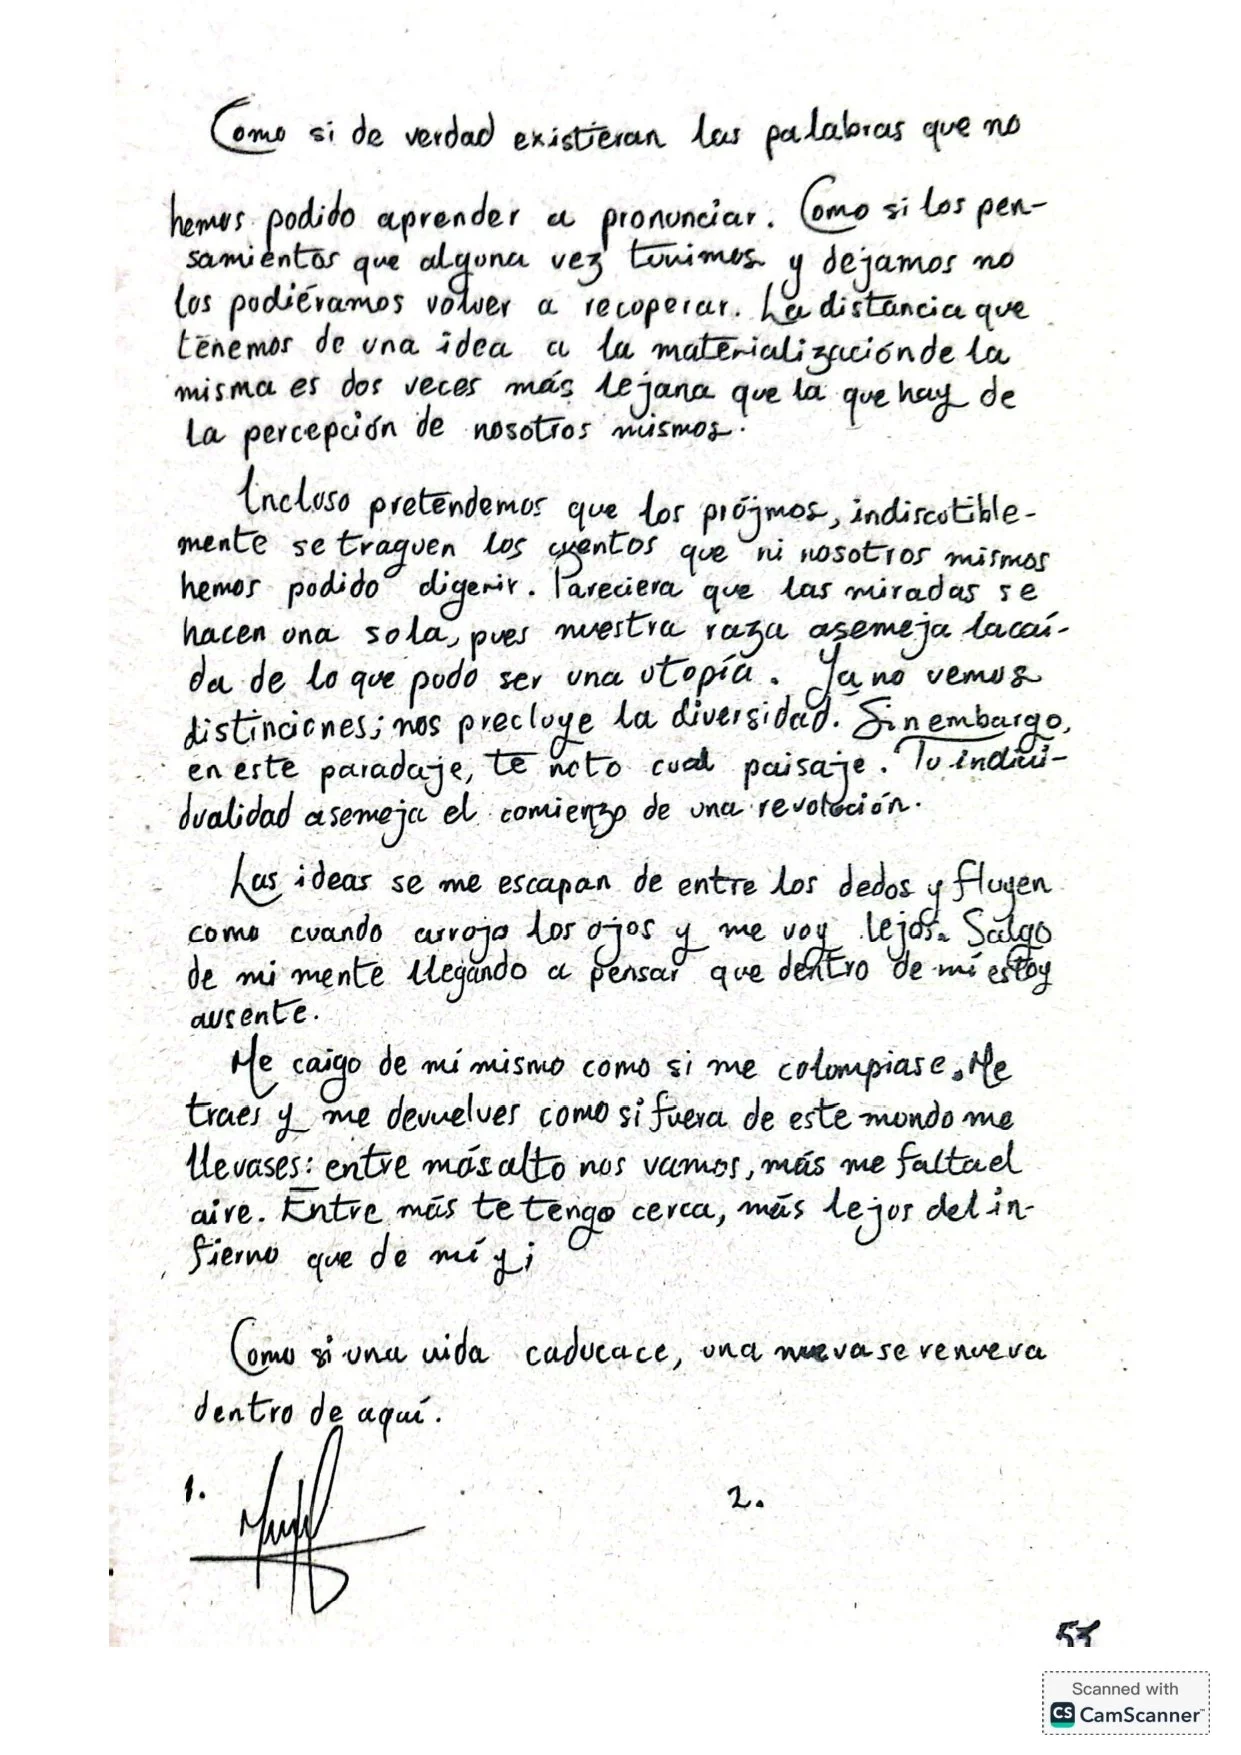 Como si de verdad existieran las palabras que no
hemos podido aprender a pronunciar. Como si los pen-
samientos que alguna vez tuvimos y dejamos no
los pudiéramos volver a recuperar. La distancia que
tenemos de una idea a la materialización de la
misma es dos veces más lejana que la que hay de
la percepción de nosotros mismos.
Incluso pretendemos que los prójmos, indiscutible-
mente se traguen los cuentos que ni nosotros mismos
hemos podido digerir. Pareciera que las miradas se
hacen una sola, pues nuestra raza asemeja la caí-
da de lo que pudo ser una utopía. Ya no vemos
distinciones; nos precluye la diversidad. Sin embargo,
en este paradaje, te noto cual paisaje. Tu indivi-
dualidad asemeja el comienzo de una revolución.
Las ideas se me escapan de entre los dedos y fluyen
como cuando arrojo los ojos y me voy lejos. Salgo
de mi mente llegando a pensar que dentro de mí estoy
ausente.
Me caigo de mí mismo como si me colompiase. Me
traes y me devuelves como si fuera de este mundo me
llevases: entre más alto nos vamos, más me falta el
aire. Entre más te tengo cerca, más lejos del in-
fierno que de mí y;
Como si una vida caducace, una nueva se renueva
dentro de aquí.
1.
2.
Scanned with
CS CamScanner